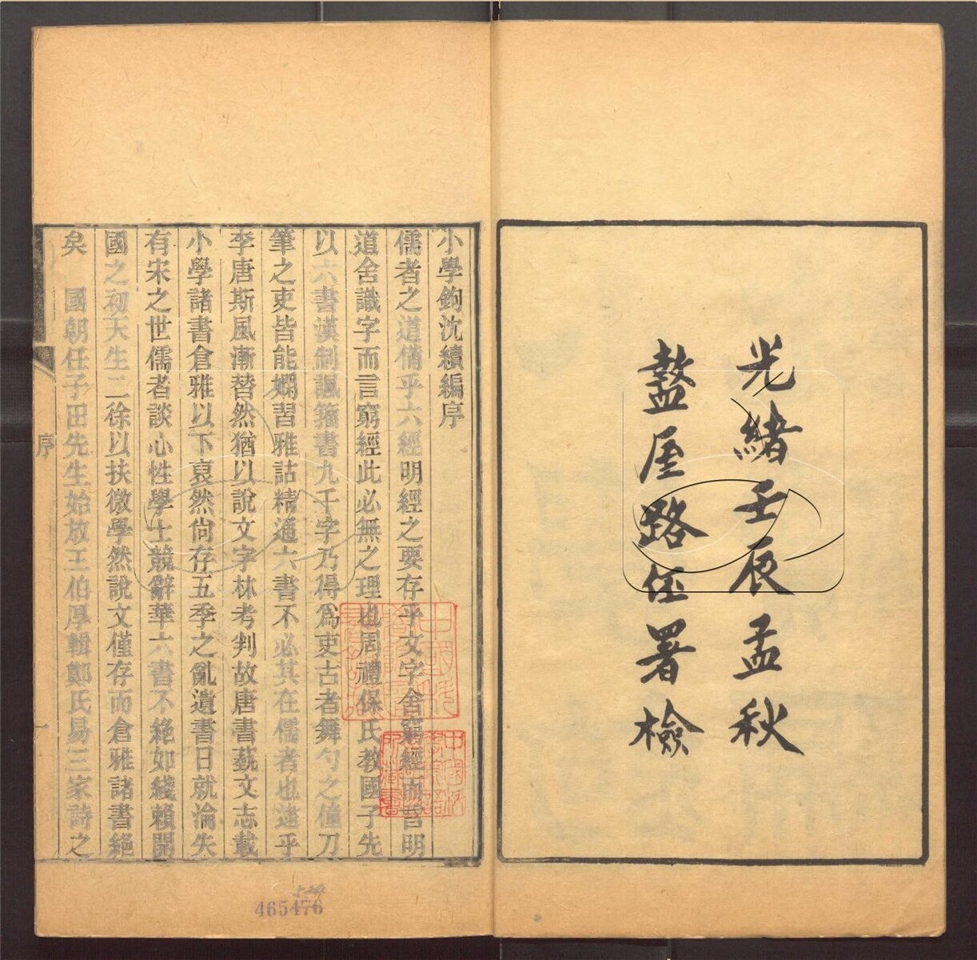 光緒壬辰孟秋
盩厔路岯署檢
小學鉤沈續編序
儒者之道備乎六經明經之要存乎文字舍窮經而言明
道舍識字而言窮經此必無之理也周禮保氏教國子先
以六書漢制諷籀書九千字乃得爲吏古者舞勺之僮刀
筆之吏皆能嫻習雅詁精通六書不必其在儒者也逮乎
李唐斯風漸替然猶以說文字林考判故唐書藝文志載
小學諸書倉雅以下裒然尙存五季之亂遺書日就淪失
有宋之世儒者談心性學士競辭華六書不絕如綫賴開
國之初天生二徐以扶微學然說文僅存而倉雅諸書絕
矣 國朝任子田先生始放王伯厚輯鄭氏易三家詩之
序
一
465476